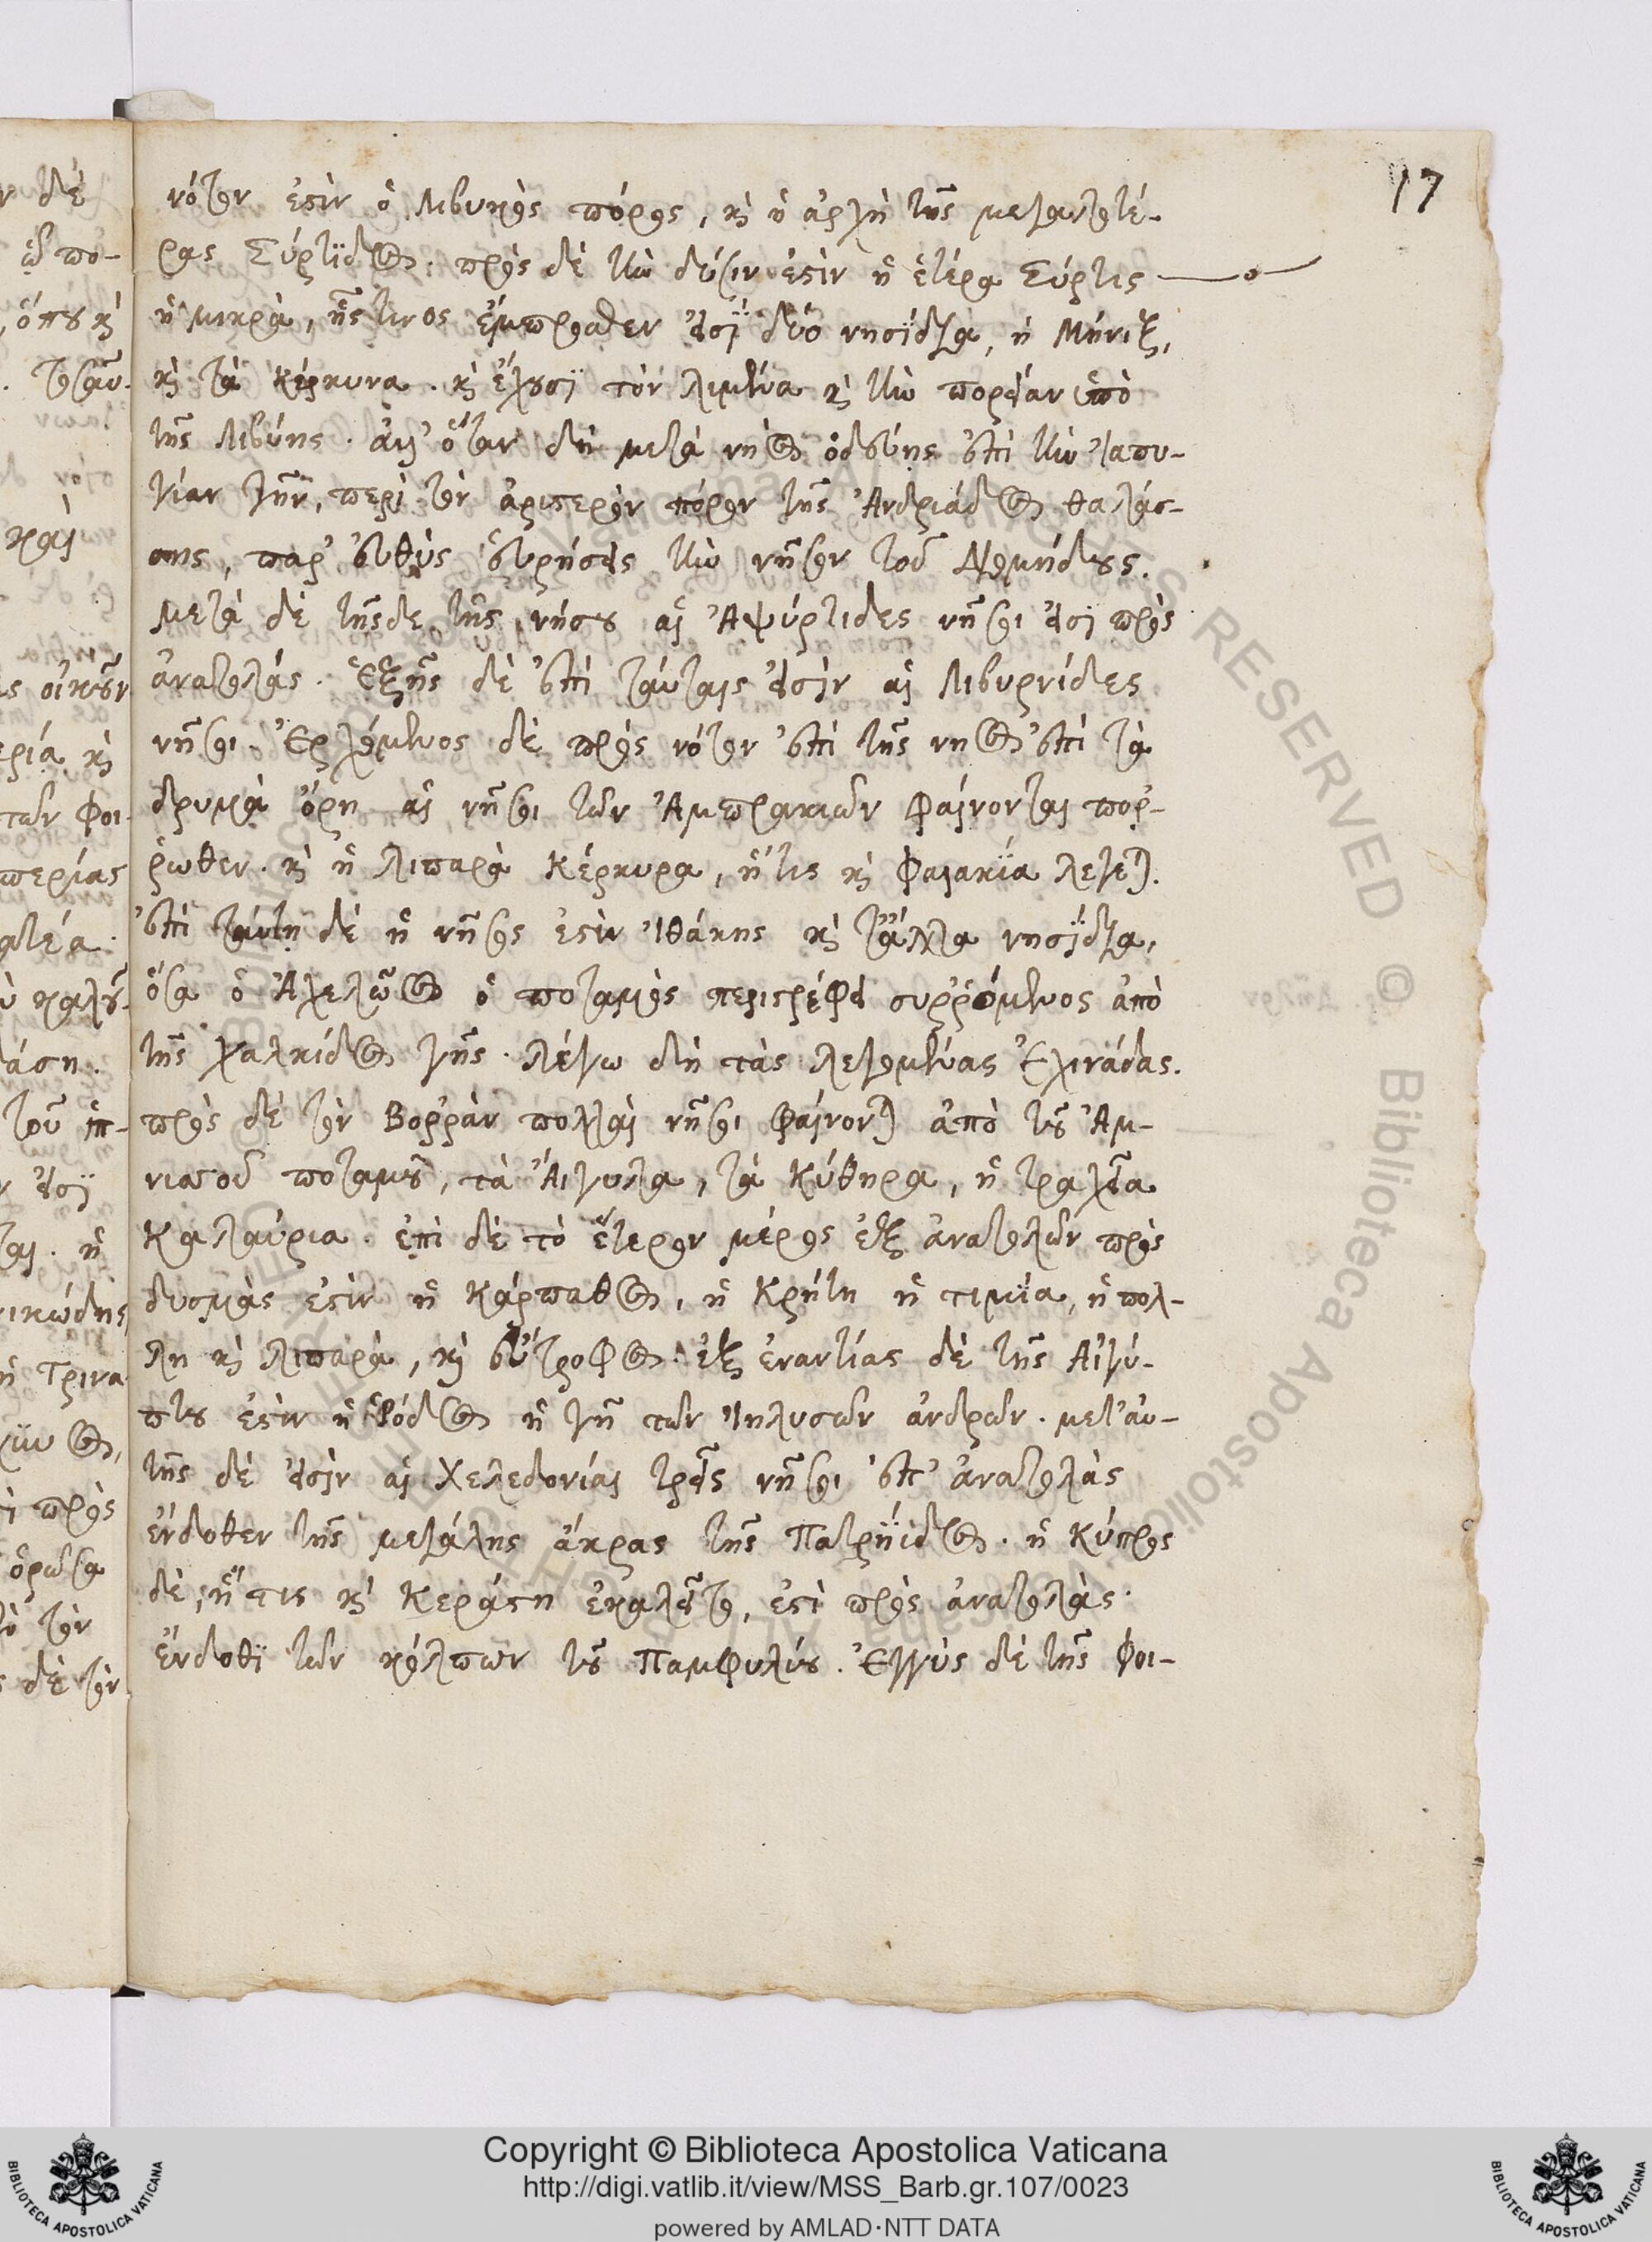 17
νότον ἐστὶν ὁ Λιβυκὸς πόρος, καὶ ἡ ἀρχὴ τῆς μεγαλωτέ-
ρας Σύρτιδος. πρὸς δὲ τὴν δύσιν ἐστὶν ἡ ἑτέρα Σύρτις
ἡ μικρὰ, ἧς τινος ἔμπροσθεν εἰσῒ δύο νησΐδια, ἡ Μήνιξ,
καὶ τὰ Κέρκυνα. καὶ ἔχουσϊ τὸν λιμένα καὶ τὴν πορείαν ὑπὸ
τῆς Λιβύης. ἀλλ' ὅταν δὴ μετὰ νηὸς ὁδεύῃς ἐπὶ τὴν Ἰαπυ-
γίαν γῆν, περὶ τὸν ἀριστερὸν πόρον τῆς Ἀνδριάδος θαλάσ-
σης, παρ' εὐθὺς εὑρήσεις τὴν νῆσον τοῦ Διομήδους.
μετὰ δὲ τῆςδε τῆς νήσου αἱ Ἀψύρτιδες νῆσοι εἰσὶ πρὸς
ἀνατολάς. Ἑξῆς δὲ ἐπὶ ταύταις εἰσὶν αἱ Λιβυρνίδες
νῆσοι. Ἐρχόμενος δὲ πρὸς νότον ἐπὶ τῆς νηὸς ἐπὶ τὰ
δρυμὰ ὄρη αἱ νῆσοι τῶν Ἀμπρακιῶν φαίνονται πόρ-
ῥωθεν. καὶ ἡ λιπαρὰ Κέρκυρα, ἥ τις καὶ Φαιακΐα λέγεται.
ἐπὶ ταύτῃ δὲ ἡ νῆσος ἐστὶν Ἰθάκης καὶ τἄλλα νησΐδια,
ὅσα ὁ Ἀχελῶος ὁ ποταμὸς περιστρέφει συῤῥεόμενος ἀπὸ
τῆς χαλκίδος γῆς. λέγω δὴ τὰς λεγομένας Ἐχινάδας.
πρὸς δὲ τὸν Βοῤῥὰν πολλαὶ νῆσοι φαίνονται ἀπὸ τοῦ Ἀμ-
νισοῦ ποταμοῦ, τὰ Ἄιγυλα, τὰ Κύθηρα, ἡ τραχεῖα
Καλαύρια. ἐπὶ δὲ τὸ ἕτερον μέρος ἐξ ἀνατολῶν πρὸς
δυσμὰς ἐστὶν ἡ Κάρπαθος, ἡ Κρήτη ἡ τιμΐα, ἡ πολ-
λη καὶ λιπαρὰ, καὶ εὔτροφος. ἐξ ἐναντίας δὲ τῆς Αἰγύ-
πτου ἐστὶν ἡ Ῥόδος ἡ γῆ τῶν Ἰηλυσῶν ἀνδρῶν. μετ' αὐ-
τῆς δὲ εἰσὶν αἱ Χελεδονίαι τρεῖς νῆσοι ἐπ' ἀνατολὰς
ἔνδοθεν τῆς μεγάλης ἄκρας τῆς Πατρηΐδος. ἡ Κύπρος
δὲ, ἥ τις καὶ Κεράστη ἐκαλεῖτο, ἐστὶ πρὸς ἀνατολὰς
ἔνδοθϊ τῶν κόλπων τοῦ Παμφυλίου. Ἐγγὺς δὲ τῆς Φοι-
Copyright © Biblioteca Apostolica Vaticana
http://digi.vatlib.it/view/MSS_Barb.gr.107/0023
powered by AMLAD·NTT DATA